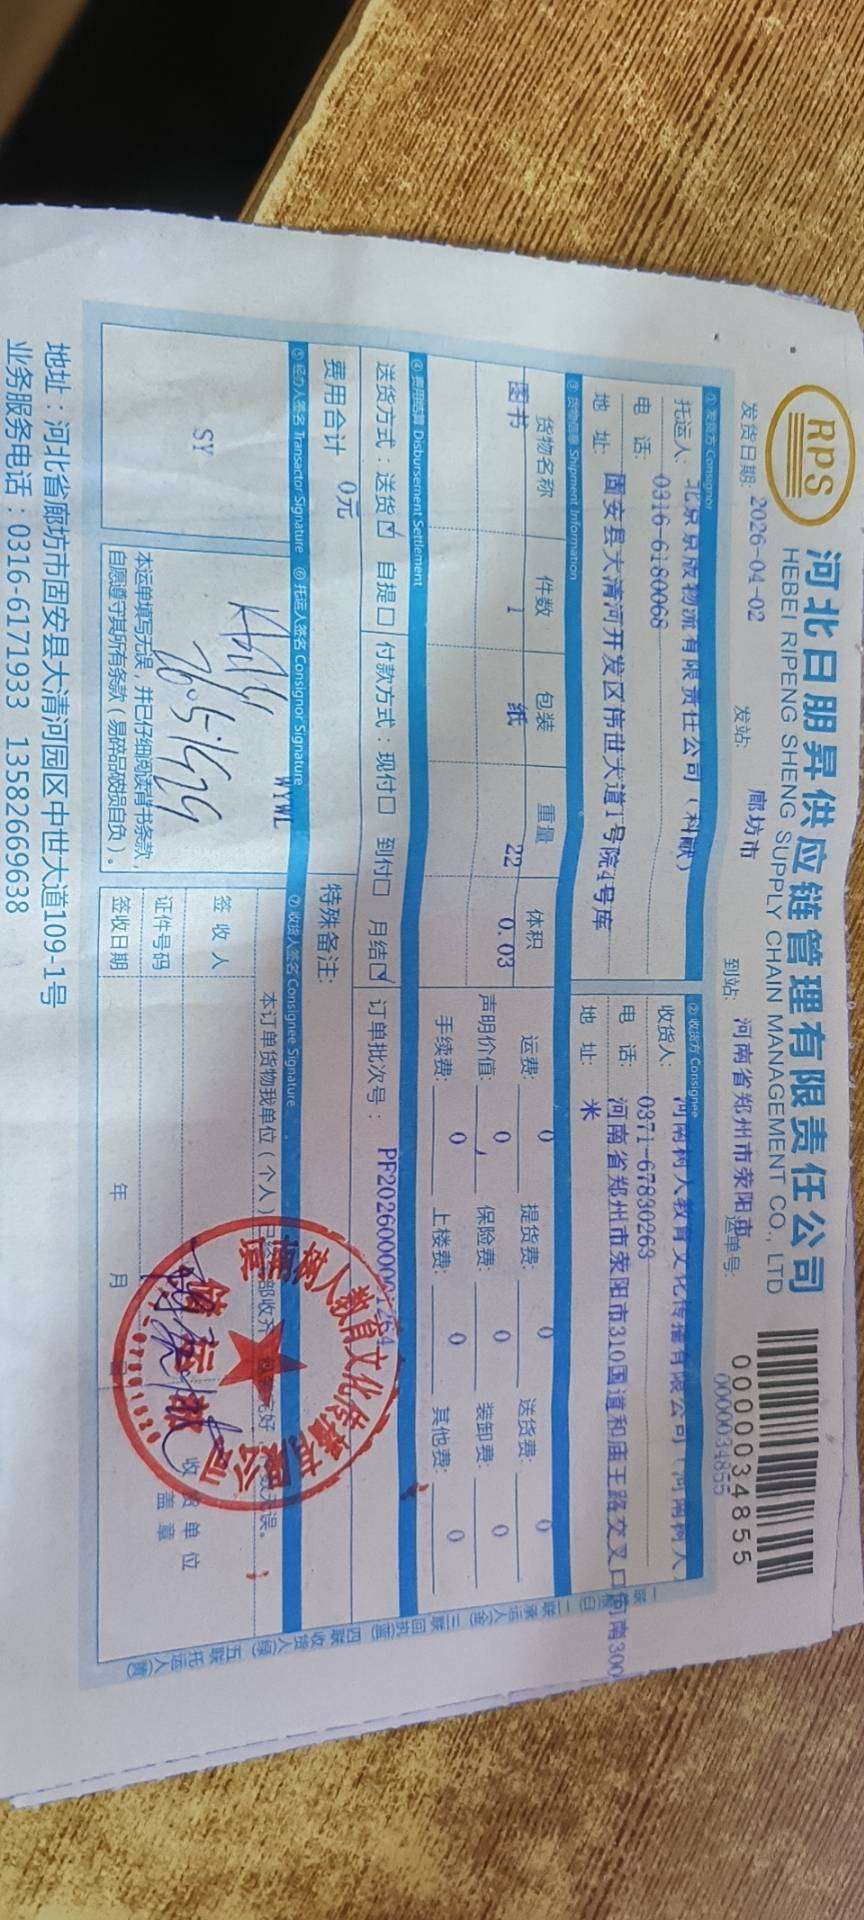 RPS
河北日朋昇供应链管理有限责任公司
HEBEI RIPENG SHENG SUPPLY CHAIN MANAGEMENT CO., LTD
0000034855
发货日期: 2026-04-02 发站: 廊坊市 到站: 河南省郑州市荥阳市 运单号: 0000034855
① 发货方 Consignor
托运人: 北京京版物流有限责任公司（科献）
电 话: 0316-6180068
地 址: 固安县大清河开发区伟世大道1号院4号库
② 收货方 Consignee
收货人: 河南树人教育文化传播有限公司（河南树人
电 话: 0371-67830263
地 址: 河南省郑州市荥阳市310国道和庙王路交叉口向南300
米
③ 货物信息 Shipment Information
货物名称 件数 包装 重量 体积
图书 1 纸 22 0.03
运费: 0 提货费: 0 送货费: 0
声明价值: 0 保险费: 0 装卸费: 0
手续费: 0 上楼费: 0 其他费: 0
④ 费用结算 Disbursement Settlement
送货方式：送货☑ 自提☐ 付款方式：现付☐ 到付☐ 月结☑ 订单批次号： PF2026000001264
费用合计 0元 特殊备注:
⑤ 经办人签名 Transactor Signature ⑥ 托运人签名 Consignor Signature ⑦ 收货人签名 Consignee Signature
SY
WYWL
本运单填写无误，并已仔细阅读背书条款，
自愿遵守其所有条款（易碎品破损自负）。
本订单货物我单位（个人）已全部收齐 完好 数无误。
签 收 人
证件号码
签收日期 年 月
收货单位
盖 章
河南树人教育文化传播有限公司
一联 二联承运人(金) 三联回执(蓝) 四联收货人(绿) 五联托运人(黄)
地址：河北省廊坊市固安县大清河园区中世大道109-1号
业务服务电话：0316-6171933 13582669638